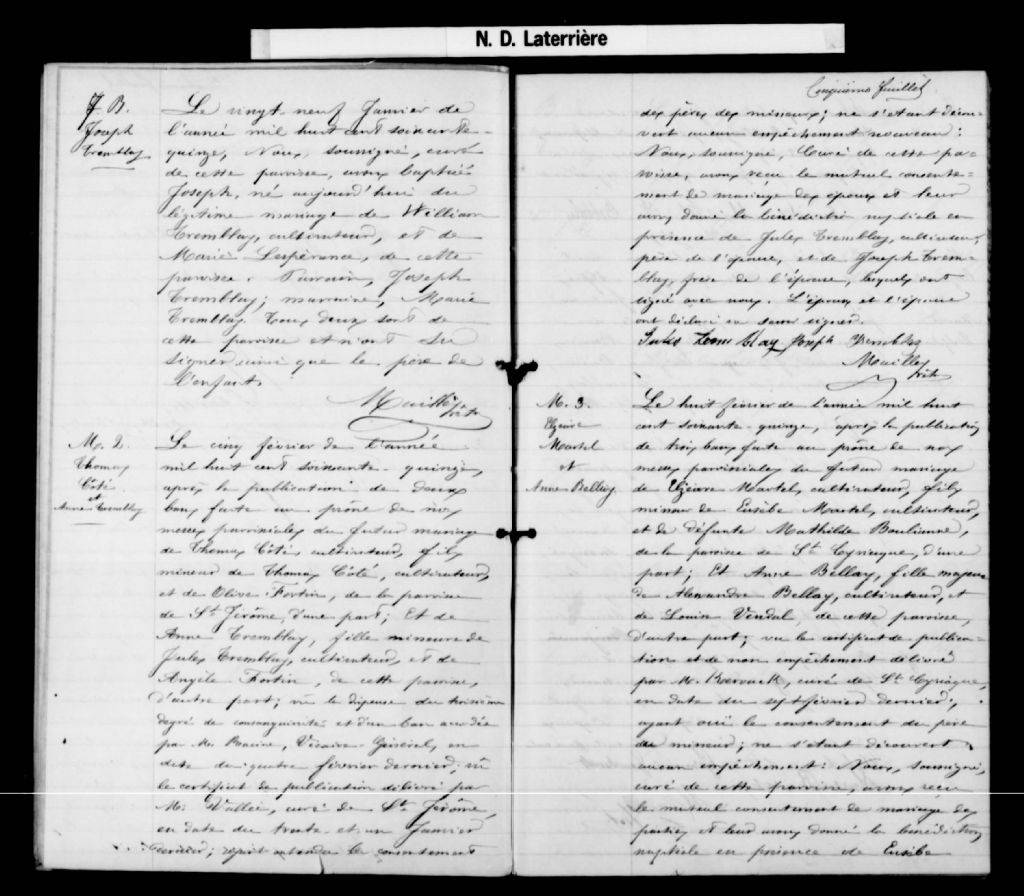 N. D. Laterrière
7 B.
Joseph
Tremblay
Le vingt-neuf Janvier de
l'année mil huit cent soixante-
quinze, Nous, soussigné, curé
de cette paroisse, avons baptisé
Joseph, né aujourd'hui du
légitime mariage de William
Tremblay, cultivateur, et de
Marie Lespérance, de cette
paroisse. Parrain, Joseph
Tremblay; marraine, Marie
Tremblay. Tous deux sont de
cette paroisse et n'ont su
signer ainsi que le père de
l'enfant.
ptre
M. 2.
Thomas
Côté
et
Anne Tremblay
Le cinq février de l'année
mil huit cent soixante-quinze,
après la publication de deux
bans faite au prône de nos
messes paroissiales du futur mariage
de Thomas Côté, cultivateur, fils
mineur de Thomas Côté, cultivateur,
et de Olive Fortin, de la paroisse
de St Jérôme, d'une part; Et de
Anne Tremblay, fille mineure de
Jules Tremblay, cultivateur, et de
Angèle Fortin, de cette paroisse,
d'autre part; vu la dispense du troisième
degré de consanguinité et d'un ban accordée
par Mr. Racine, Vicaire-Général, en
date du quatre février dernier; vu
le certificat de publication délivré par
Mr. Vallée, curé de St Jérôme,
en date du trente-et-un Janvier
dernier; le consentement
Cinquième feuillet.
des pères des mineurs; ne s'étant décou-
vert aucun empêchement nouveau:
Nous, soussigné, Curé de cette pa-
roisse, avons reçu le mutuel consente-
ment de mariage des époux et leur
avons donné la bénédiction nuptiale en
présence de Jules Tremblay, cultivateur,
père de l'épouse, et de Joseph Trem-
blay, frère de l'épouse, lesquels ont
signé avec nous. L'époux et l'épouse
ont déclaré ne savoir signer.
Jules Tremblay Joseph Tremblay
ptre
M. 3.
Elzéare
Martel
et
Anne Bellay
Le huit février de l'année mil huit
cent soixante-quinze, après la publication
de trois bans faite au prône de nos
messes paroissiales du futur mariage
de Elzéare Martel, cultivateur, fils
mineur de Eusèbe Martel, cultivateur,
et de défunte Mathilde Boulianne,
de la paroisse de St Cyriaque, d'une
part; Et Anne Bellay, fille majeure
de Alexandre Bellay, cultivateur, et
de Louise Vendal, de cette paroisse,
d'autre part; vu le certificat de publica-
tion et de non empêchement délivré
par Mr. curé de St Cyriaque,
en date du sept février dernier,
ayant ouï le consentement du père
du mineur; ne s'étant découvert
aucun empêchement: Nous, soussigné,
curé de cette paroisse, avons reçu
le mutuel consentement de mariage des
parties et leur avons donné la bénédiction
nuptiale en présence de Eusèbe